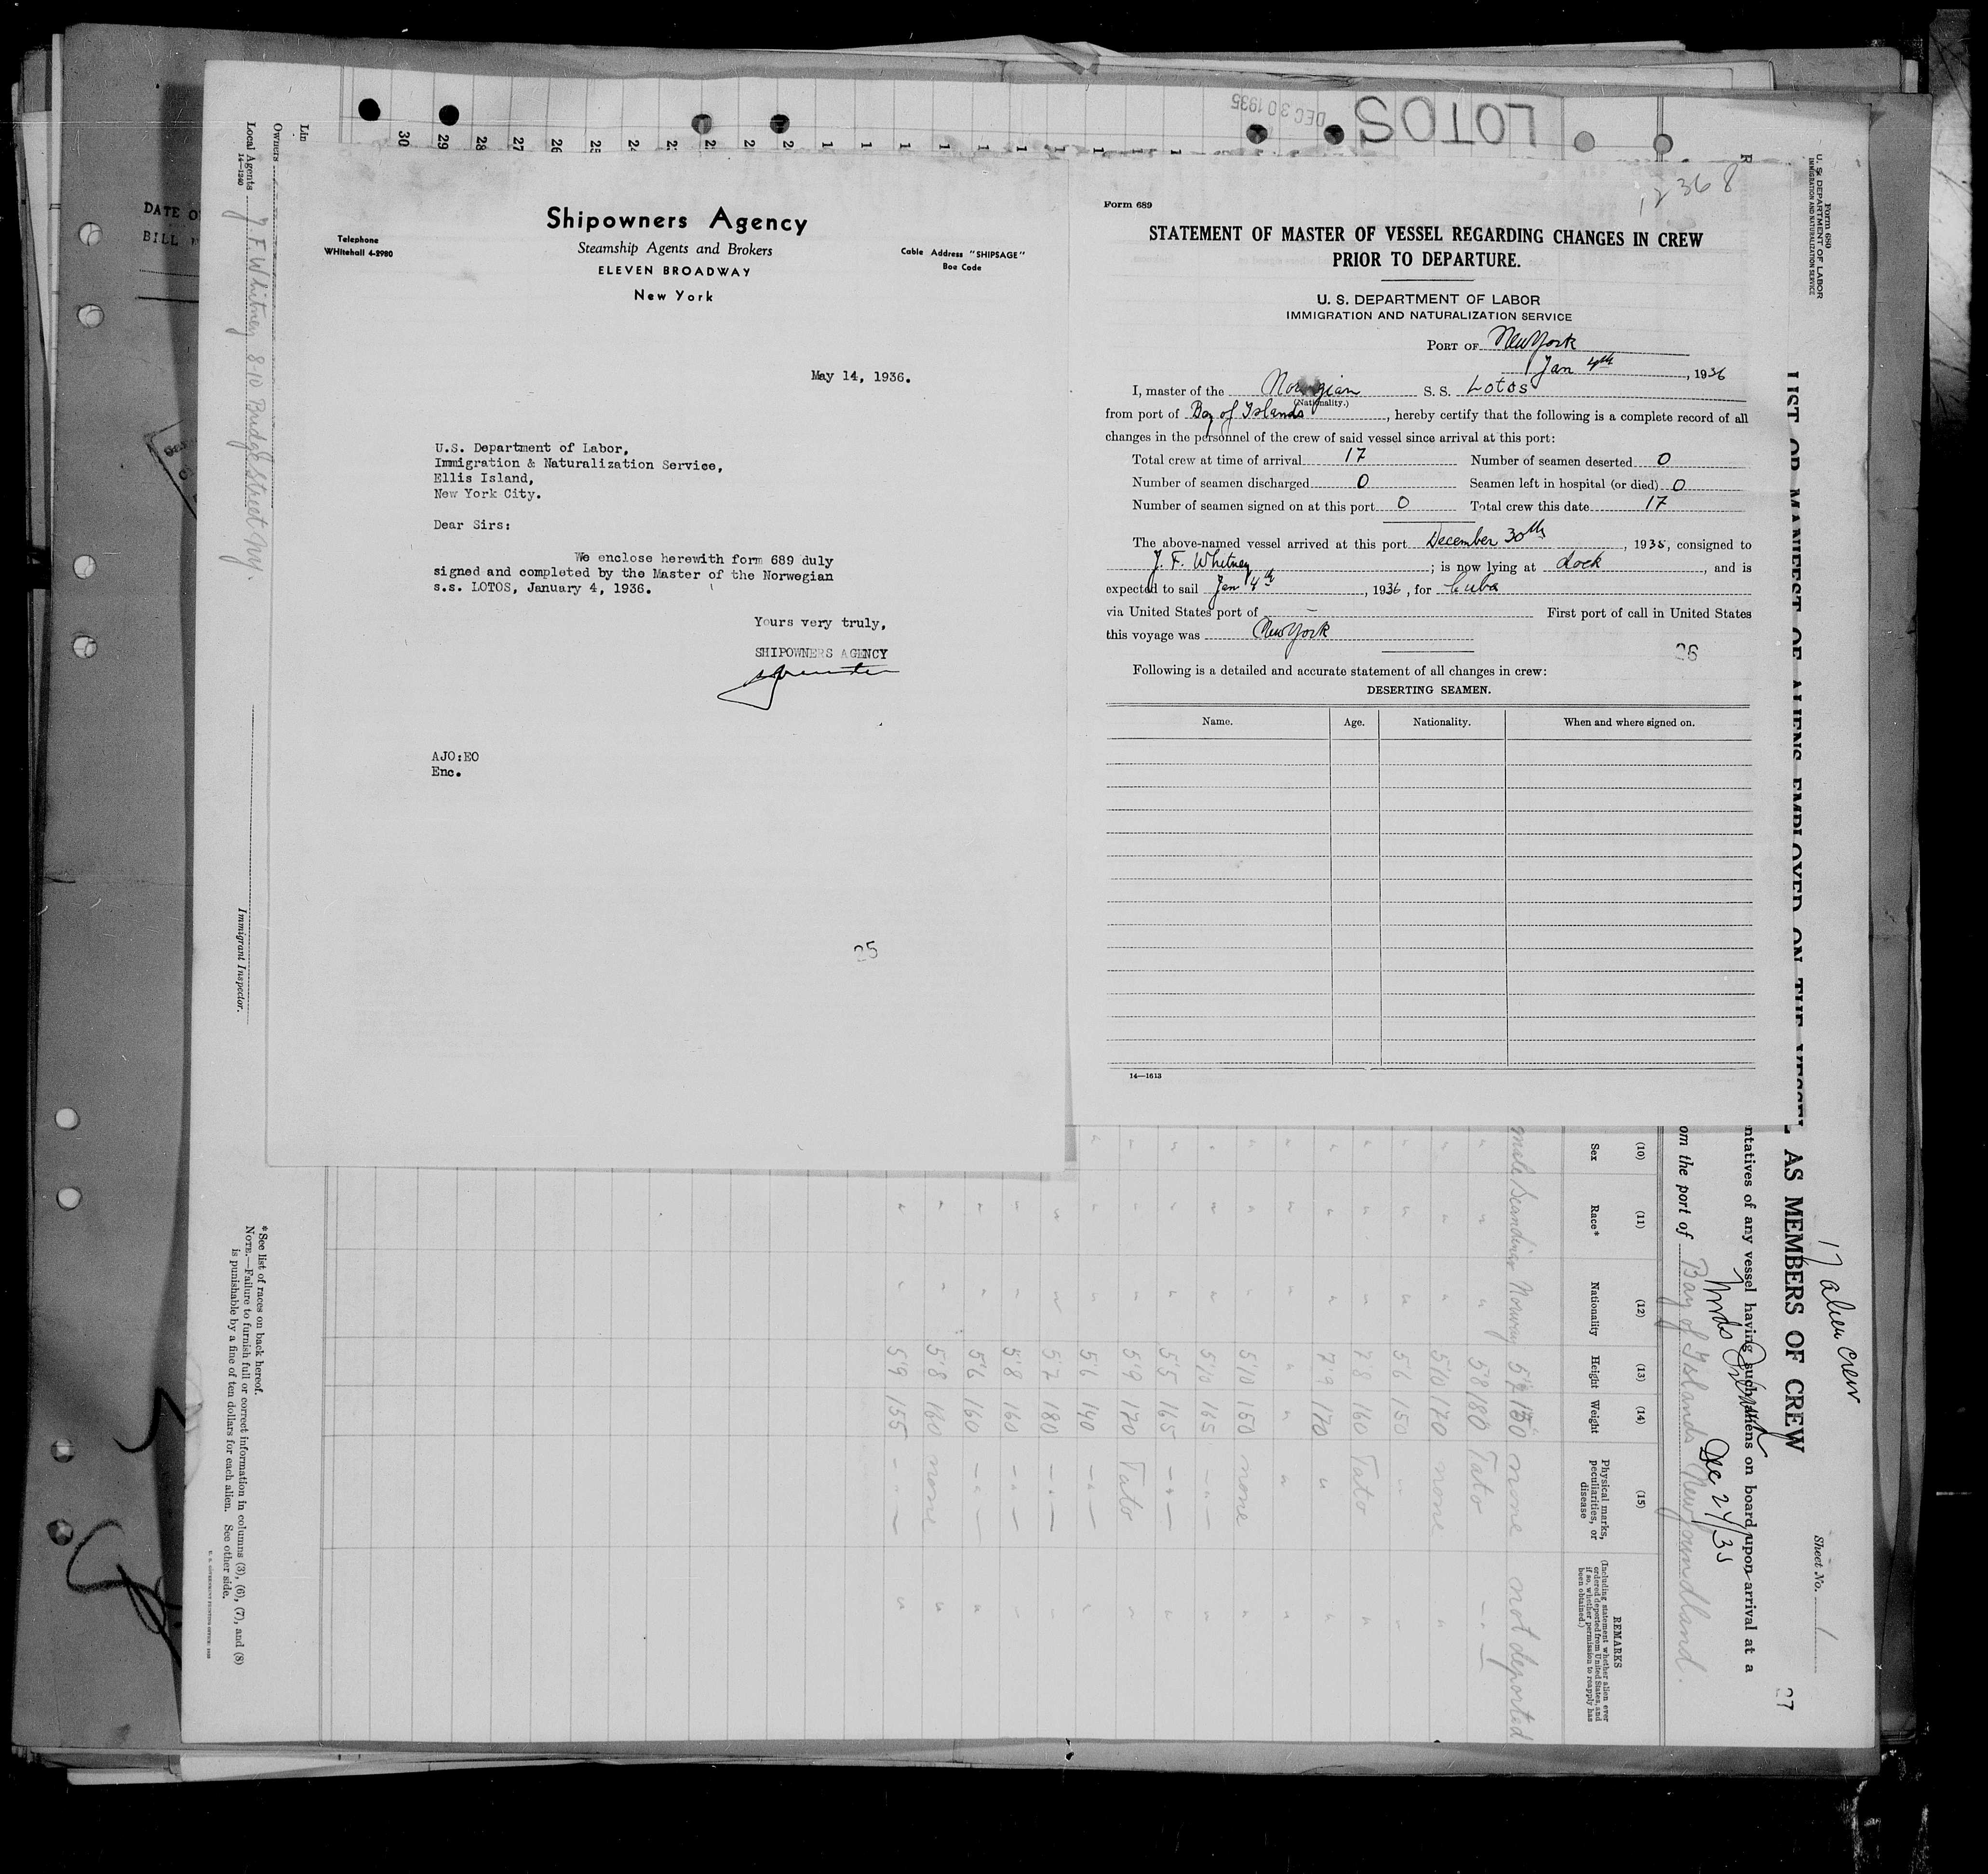 LOTOS
DEC 30 1935
30 29 28 27 26 25
DATE O
BILL
Lin
Owners
Local Agents J. F. Whitney 8-10 Bridge Street N.Y.
14-1240
Immigrant Inspector.
Shipowners Agency
Steamship Agents and Brokers
ELEVEN BROADWAY
New York
Telephone
WHitehall 4-2980
Cable Address "SHIPSAGE"
Boe Code
May 14, 1936.
U.S. Department of Labor,
Immigration & Naturalization Service,
Ellis Island,
New York City.
Dear Sirs:
We enclose herewith form 689 duly
signed and completed by the Master of the Norwegian
s.s. LOTOS, January 4, 1936.
Yours very truly,
SHIPOWNERS AGENCY
AJO:EO
Enc.
25
12368
Form 689
STATEMENT OF MASTER OF VESSEL REGARDING CHANGES IN CREW
PRIOR TO DEPARTURE.
U. S. DEPARTMENT OF LABOR
IMMIGRATION AND NATURALIZATION SERVICE
PORT OF New York
Jan 4th, 1936
I, master of the Norwegian S. S. Lotos
(Nationality.)
from port of Bay of Islands, hereby certify that the following is a complete record of all
changes in the personnel of the crew of said vessel since arrival at this port:
Total crew at time of arrival 17 Number of seamen deserted 0
Number of seamen discharged 0 Seamen left in hospital (or died) 0
Number of seamen signed on at this port 0 Total crew this date 17
The above-named vessel arrived at this port December 30th, 1935, consigned to
J. F. Whitney; is now lying at dock, and is
expected to sail Jan 4th, 1936, for Cuba
via United States port of – First port of call in United States
this voyage was New York
26
Following is a detailed and accurate statement of all changes in crew:
DESERTING SEAMEN.
Name. Age. Nationality. When and where signed on.
14—1613
Form 689
U. S. DEPARTMENT OF LABOR
IMMIGRATION AND NATURALIZATION SERVICE
LIST OR MANIFEST OF ALIENS EMPLOYED ON THE VESSEL AS MEMBERS OF CREW
17 alien crew
Sheet No. 1
27
ntatives of any vessel having such aliens on board upon arrival at a
Dec 24/35
om the port of Bay of Islands Newfoundland.
(10) (11) (12) (13) (14) (15)
Sex Race* Nationality Height Weight Physical marks, peculiarities, or disease
REMARKS
(Including statement whether alien ever
ordered deported from United States, and
if so, whether permission to reapply has
been obtained.)
male Scandinav Norway 5'7 150 none not deported
" " " 5'8 180 Tato
" " " 5'10 170 none "
" " " 5'6 150 " "
" " " 7'8 160 Tato "
" " " 7'9 170 " "
" " " " " " "
" " " 5'10 150 none "
" " " 5'10 165 - " - "
" " " 5'5 165 - " - "
" " " 5'9 170 Tato "
" " " 5'6 140 - " - "
" " 5'7 180 - " - "
" " 5'8 160 - " - "
" " 5'6 160 - " - "
" " 5'8 160 none "
" " 5'9 155 - " - "
*See list of races on back hereof.
NOTE.—Failure to furnish full or correct information in columns (3), (6), (7), and (8)
is punishable by a fine of ten dollars for each alien. See other side.
U. S. GOVERNMENT PRINTING OFFICE